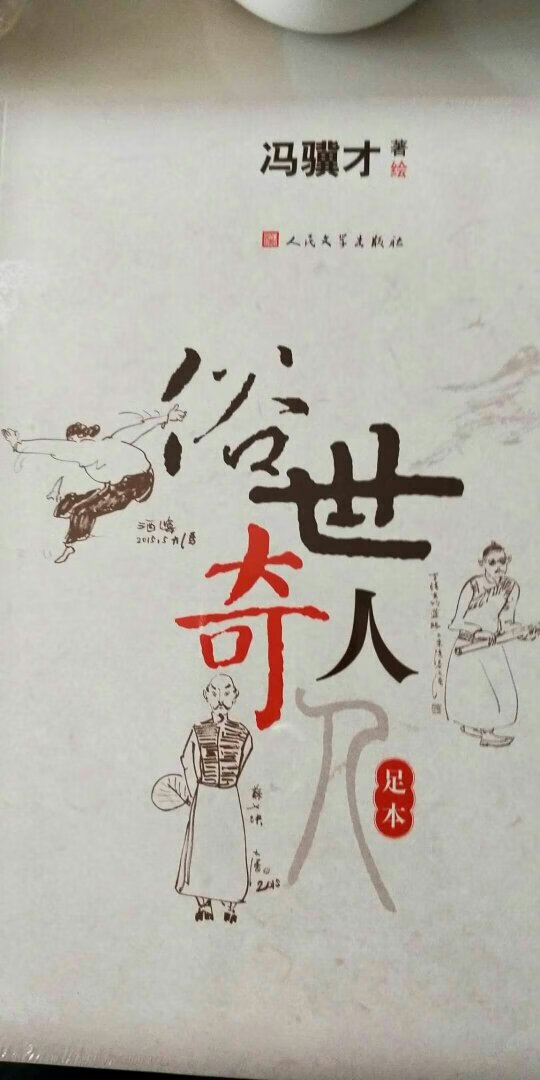 冯骥才 著 绘
人民文学出版社
俗世奇人
足本
酒婆
2015.5 大冯
蘇七块
大冯
2015